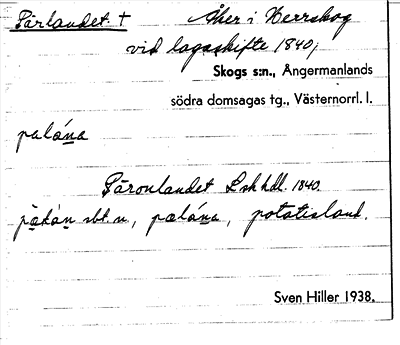 Pärlandet † Åker i Herrskog
vid lagaskifte 1840;
Skogs s:n., Ångermanlands
södra domsagas tg., Västernorrl. l.
palána
Päronlandet Lskhdl. 1840.
pàdán sbt. n., pælána, potatisland.
Sven Hiller 1938.